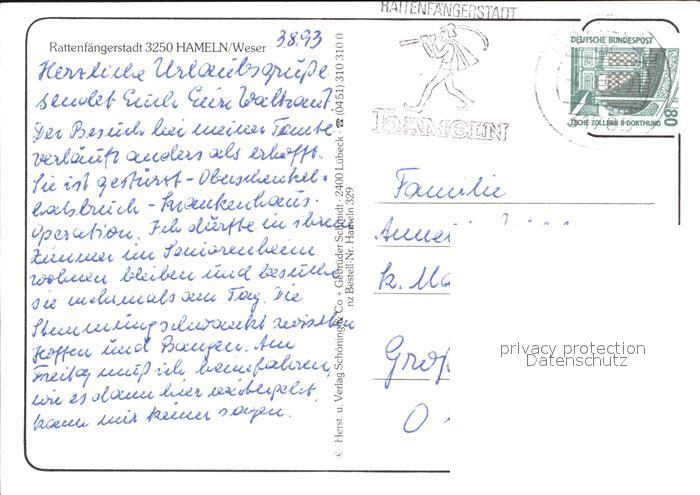 Rattenfängerstadt 3250 HAMELN/Weser
3.8.93
Herzliche Urlaubsgrüße
sendet Euch Eure Waltraut.
Der Besuch bei meiner Tante
verläuft anders als erhofft.
Sie ist gestürzt - Oberschenkel-
halsbruch - Krankenhaus -
Operation. Ich dürfte in ihrem
Zimmer im Seniorenheim
wohnen bleiben und besuche
sie mehrmals am Tag. Die
Stimmung schwankt zwischen
Hoffen und Bangen. Am
Freitag muß ich heimfahren,
wie es dann hier weitergeht,
kann mir keiner sagen.
© Herst. u. Verlag Schöning & Co + Gebrüder Schmidt · 2400 Lübeck · ☎ (0451) 310 310 0
nz Bestell-Nr. Hameln 329
RATTENFÄNGERSTADT
HAMELN
DEUTSCHE BUNDESPOST
ZECHE ZOLLERN II DORTMUND
80
Familie
K. Ma
Groß
O
privacy protection
Datenschutz